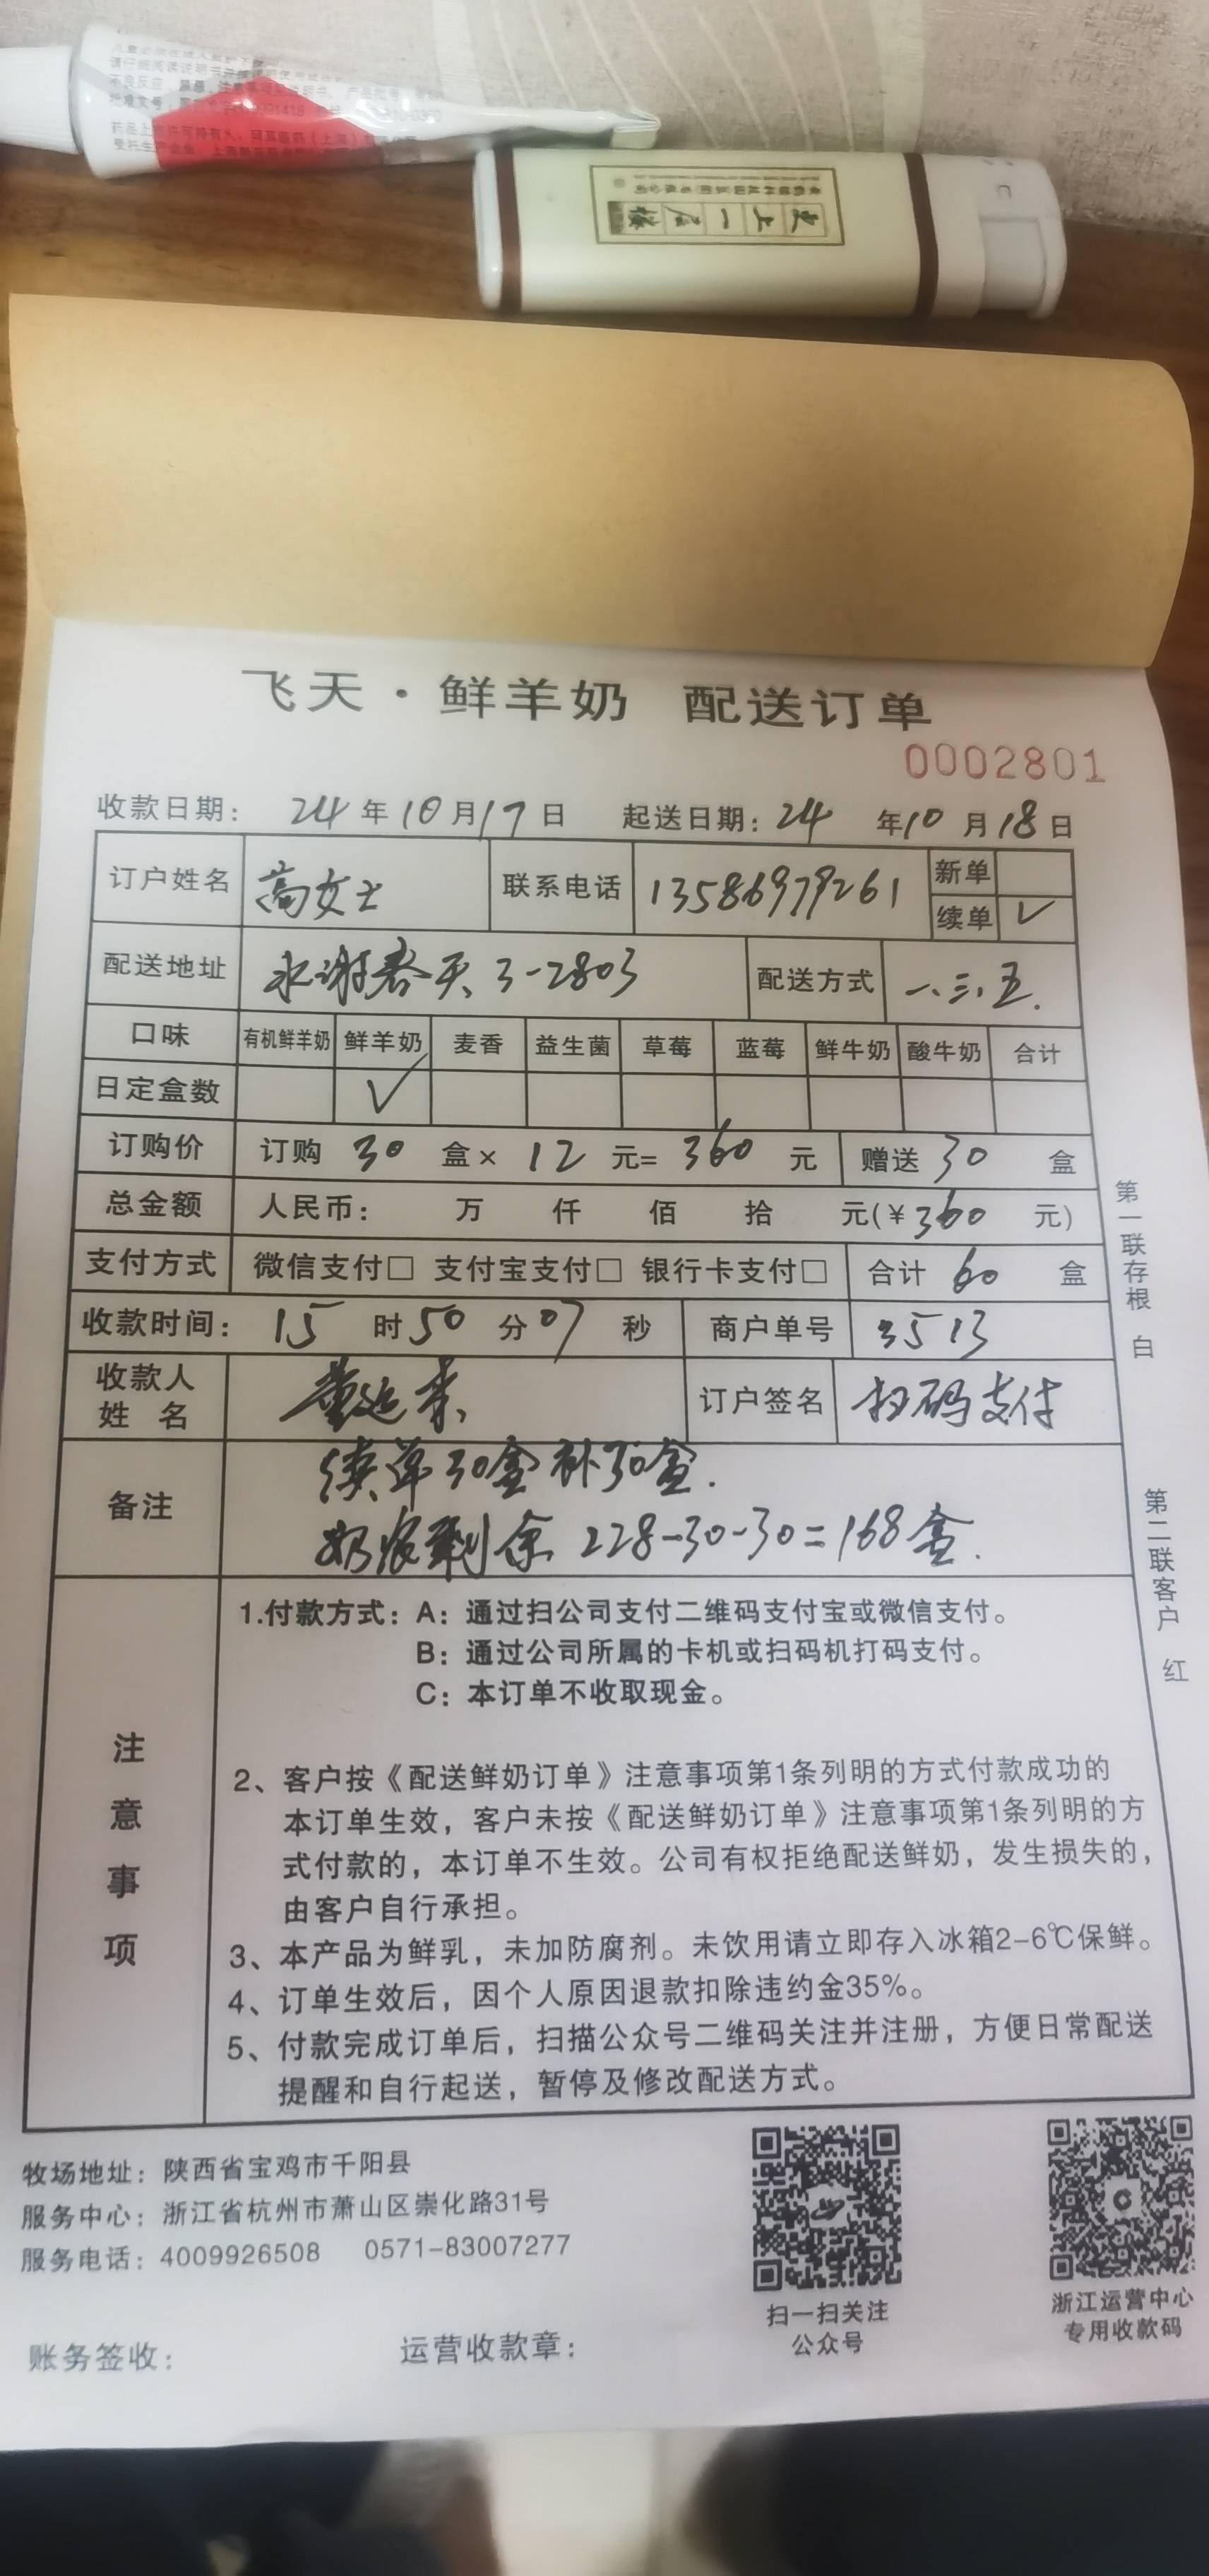 更上一层楼
飞天·鲜羊奶 配送订单
0002801
收款日期: 24年10月17日 起送日期:24年10月18日
订户姓名 高女士 联系电话 13586979261 新单
续单 ✓
配送地址 水谢春天3-2803 配送方式 一、三、五.
口味 有机鲜羊奶 鲜羊奶 麦香 益生菌 草莓 蓝莓 鲜牛奶 酸牛奶 合计
日定盒数 ✓
订购价 订购 30 盒× 12 元= 360 元 赠送 30 盒
总金额 人民币: 万 仟 佰 拾 元(¥360 元)
支付方式 微信支付□ 支付宝支付□ 银行卡支付□ 合计 60 盒
收款时间: 15 时 50 分 07 秒 商户单号 3513
收款人
姓 名 订户签名 扫码支付
备注 续单30盒补30盒.
剩余 228-30-30=168盒.
注意事项
1.付款方式: A: 通过扫公司支付二维码支付宝或微信支付。
B: 通过公司所属的卡机或扫码机打码支付。
C: 本订单不收取现金。
2、客户按《配送鲜奶订单》注意事项第1条列明的方式付款成功的
本订单生效，客户未按《配送鲜奶订单》注意事项第1条列明的方
式付款的，本订单不生效。公司有权拒绝配送鲜奶，发生损失的，
由客户自行承担。
3、本产品为鲜乳，未加防腐剂。未饮用请立即存入冰箱2-6℃保鲜。
4、订单生效后，因个人原因退款扣除违约金35%。
5、付款完成订单后，扫描公众号二维码关注并注册，方便日常配送
提醒和自行起送，暂停及修改配送方式。
第一联存根 白
第二联客户 红
牧场地址: 陕西省宝鸡市千阳县
服务中心: 浙江省杭州市萧山区崇化路31号
服务电话: 4009926508 0571-83007277
扫一扫关注
公众号
浙江运营中心
专用收款码
账务签收: 运营收款章: